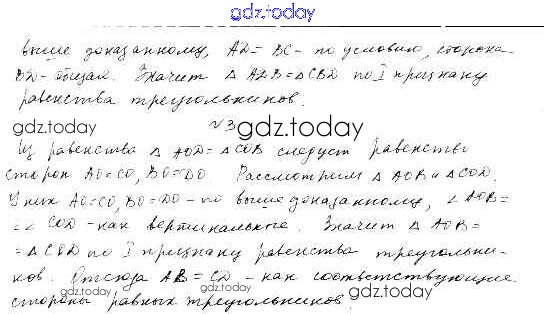 gdz.today
выше доказанному, AD = BC - по условию, сторона
BD - общая. Значит △ ADB = △ CBD по I признаку
равенства треугольников.
gdz.today
№3 gdz.today
Из равенства △ AOD = △ COB следует равенство
сторон AO = CO, BO = DO Рассмотрим △ AOB и △ COD.
У них AO = CO, BO = DO - по выше доказанному, ∠ AOB =
= ∠ COD - как вертикальные. Значит △ AOB =
= △ COD по I признаку равенства треугольни-
ков. Отсюда AB = CD - как соответствующие
стороны равных треугольников.
gdz.today gdz.today gdz.today